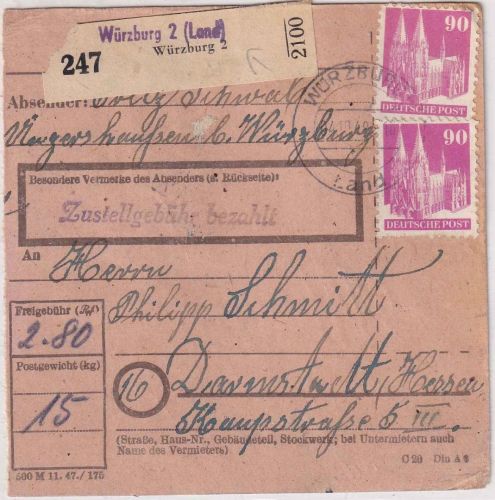 Würzburg 2 (Land)
Würzburg 2
247
2100
90
DEUTSCHE POST
90
DEUTSCHE POST
WÜRZBURG
Land
Absender: Fritz Schwab
Ungershausen b. Würzburg
Besondere Vermerke des Absenders (s. Rückseite):
Zustellgebühr bezahlt
An Herrn
Philipp Schmitt
Freigebühr (Rpf)
2.80
Postgewicht (kg)
15
16 Darmstadt, Hessen
Hauptstraße 5 III.
(Straße, Haus-Nr., Gebäudeteil, Stockwerk; bei Untermietern auch
Name des Vermieters)
500 M 11. 47./175
C 20 Din A 6